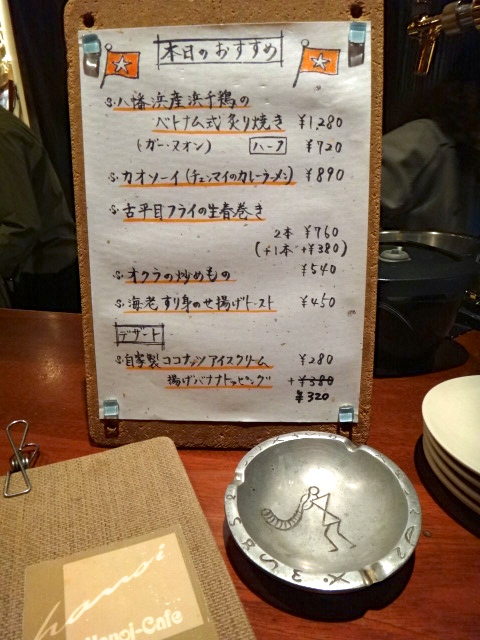 本日のおすすめ
S.八幡浜産浜千鶏の
ベトナム式炙り焼き ¥1,280
(ガー・ヌオン) ハーフ ¥720
S.カオソーイ(チェンマイのカレーラーメン) ¥890
S.古平目フライの生春巻き
2本 ¥760
(+1本 +¥380)
S.オクラの炒めもの ¥540
S.海老すり身のせ揚げトースト ¥450
デザート
S.自家製ココナッツアイスクリーム ¥280
揚げバナナトッピング +¥380
¥320
hanoi
Hanoi-Cafe